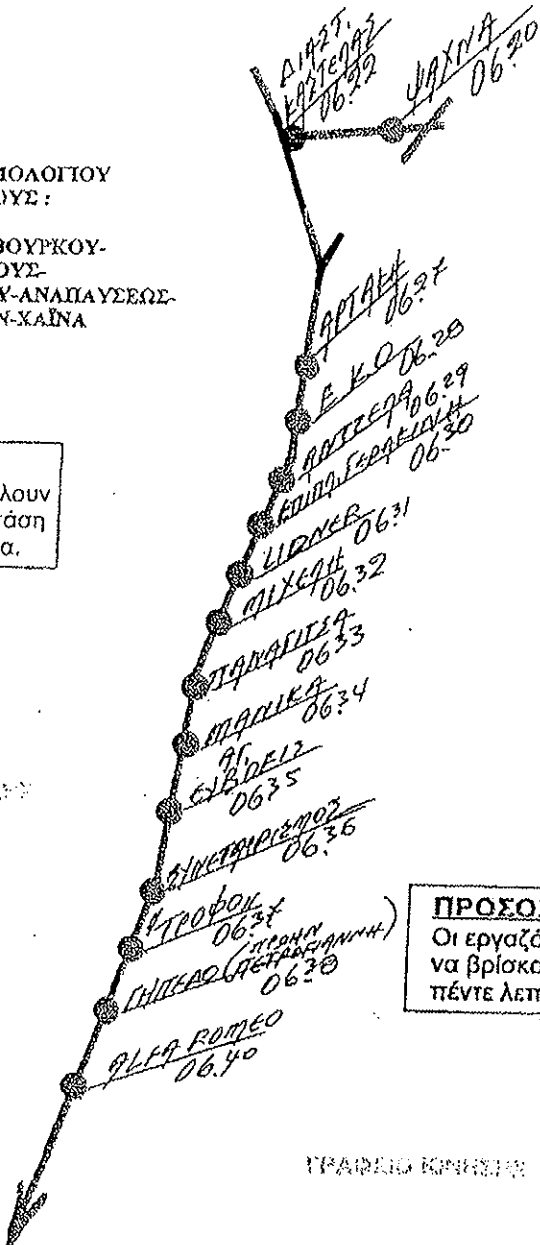 ΔΙΑΣΤ.
ΚΑΣΤΕΛΑΣ
06.22
ΨΑΧΝΑ
06.20
ΜΟΛΟΓΙΟΥ
ΟΥΣ :
ΒΟΥΡΚΟΥ-
ΟΥΣ-
Υ-ΑΝΑΠΑΥΣΕΩΣ-
Ν-ΧΑΪΝΑ
ΑΡΤΑΚΗ
06.27
Ε Κ Ο
06.28
ΑΝΤΖΕΛΑ
06.29
ΕΠΙΠΛ. ΓΕΡΑΚΙΝΗ
06.30
λουν
τάση
α.
LIDNER
06.31
ΜΙΧΕΛΗ
06.32
ΠΑΝΑΓΙΤΣΑ
06.33
ΜΑΝΙΚΑ
06.34
ΑΓ.
ΕΥΒΟΕΙΣ
06.35
ΣΥΝΕΤΑΙΡΙΣΜΟΣ
06.36
ΤΡΟΦΟΚ
06.37
ΓΗΠΕΔΟ (ΠΡΩΗΝ
ΠΕΤΡΟΓΙΑΝΝΗ)
06.38
ALFA ROMEO
06.40
ΠΡΟΣΟ
Οι εργαζό
να βρίσκο
πέντε λεπ
ΓΡΑΦΕΙΟ ΚΙΝΗΣΕΩΣ